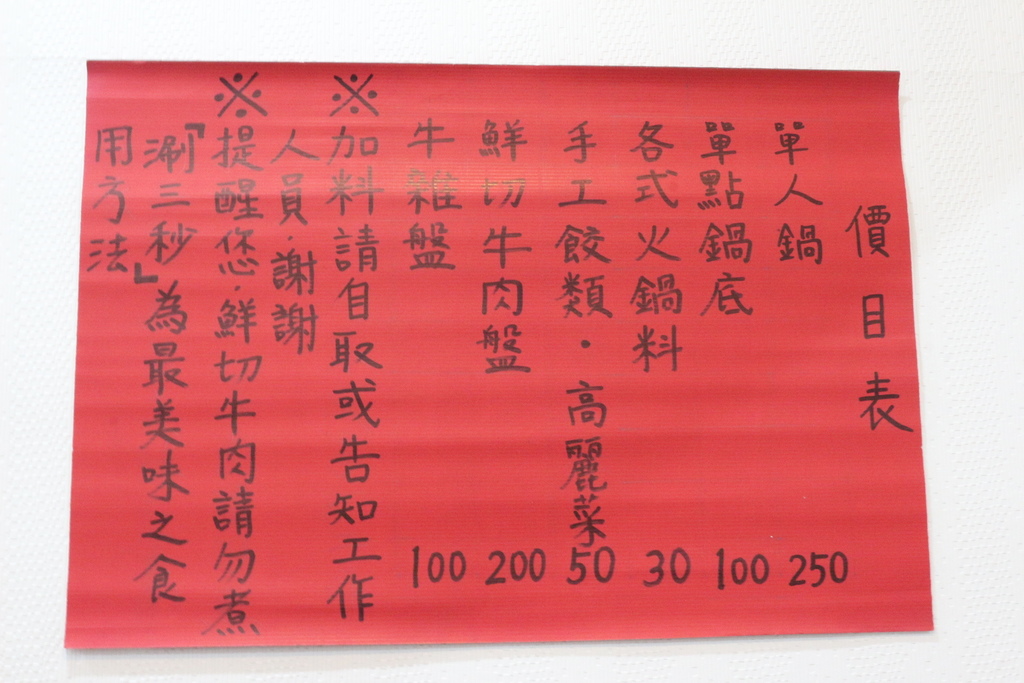 價目表
單人鍋 250
單點鍋底 100
各式火鍋料 30
手工餃類·高麗菜 50
鮮切牛肉盤 200
牛雜盤 100
※加料請自取或告知工作
人員·謝謝
※提醒您·鮮切牛肉請勿煮
「涮三秒」為最美味之食
用方法